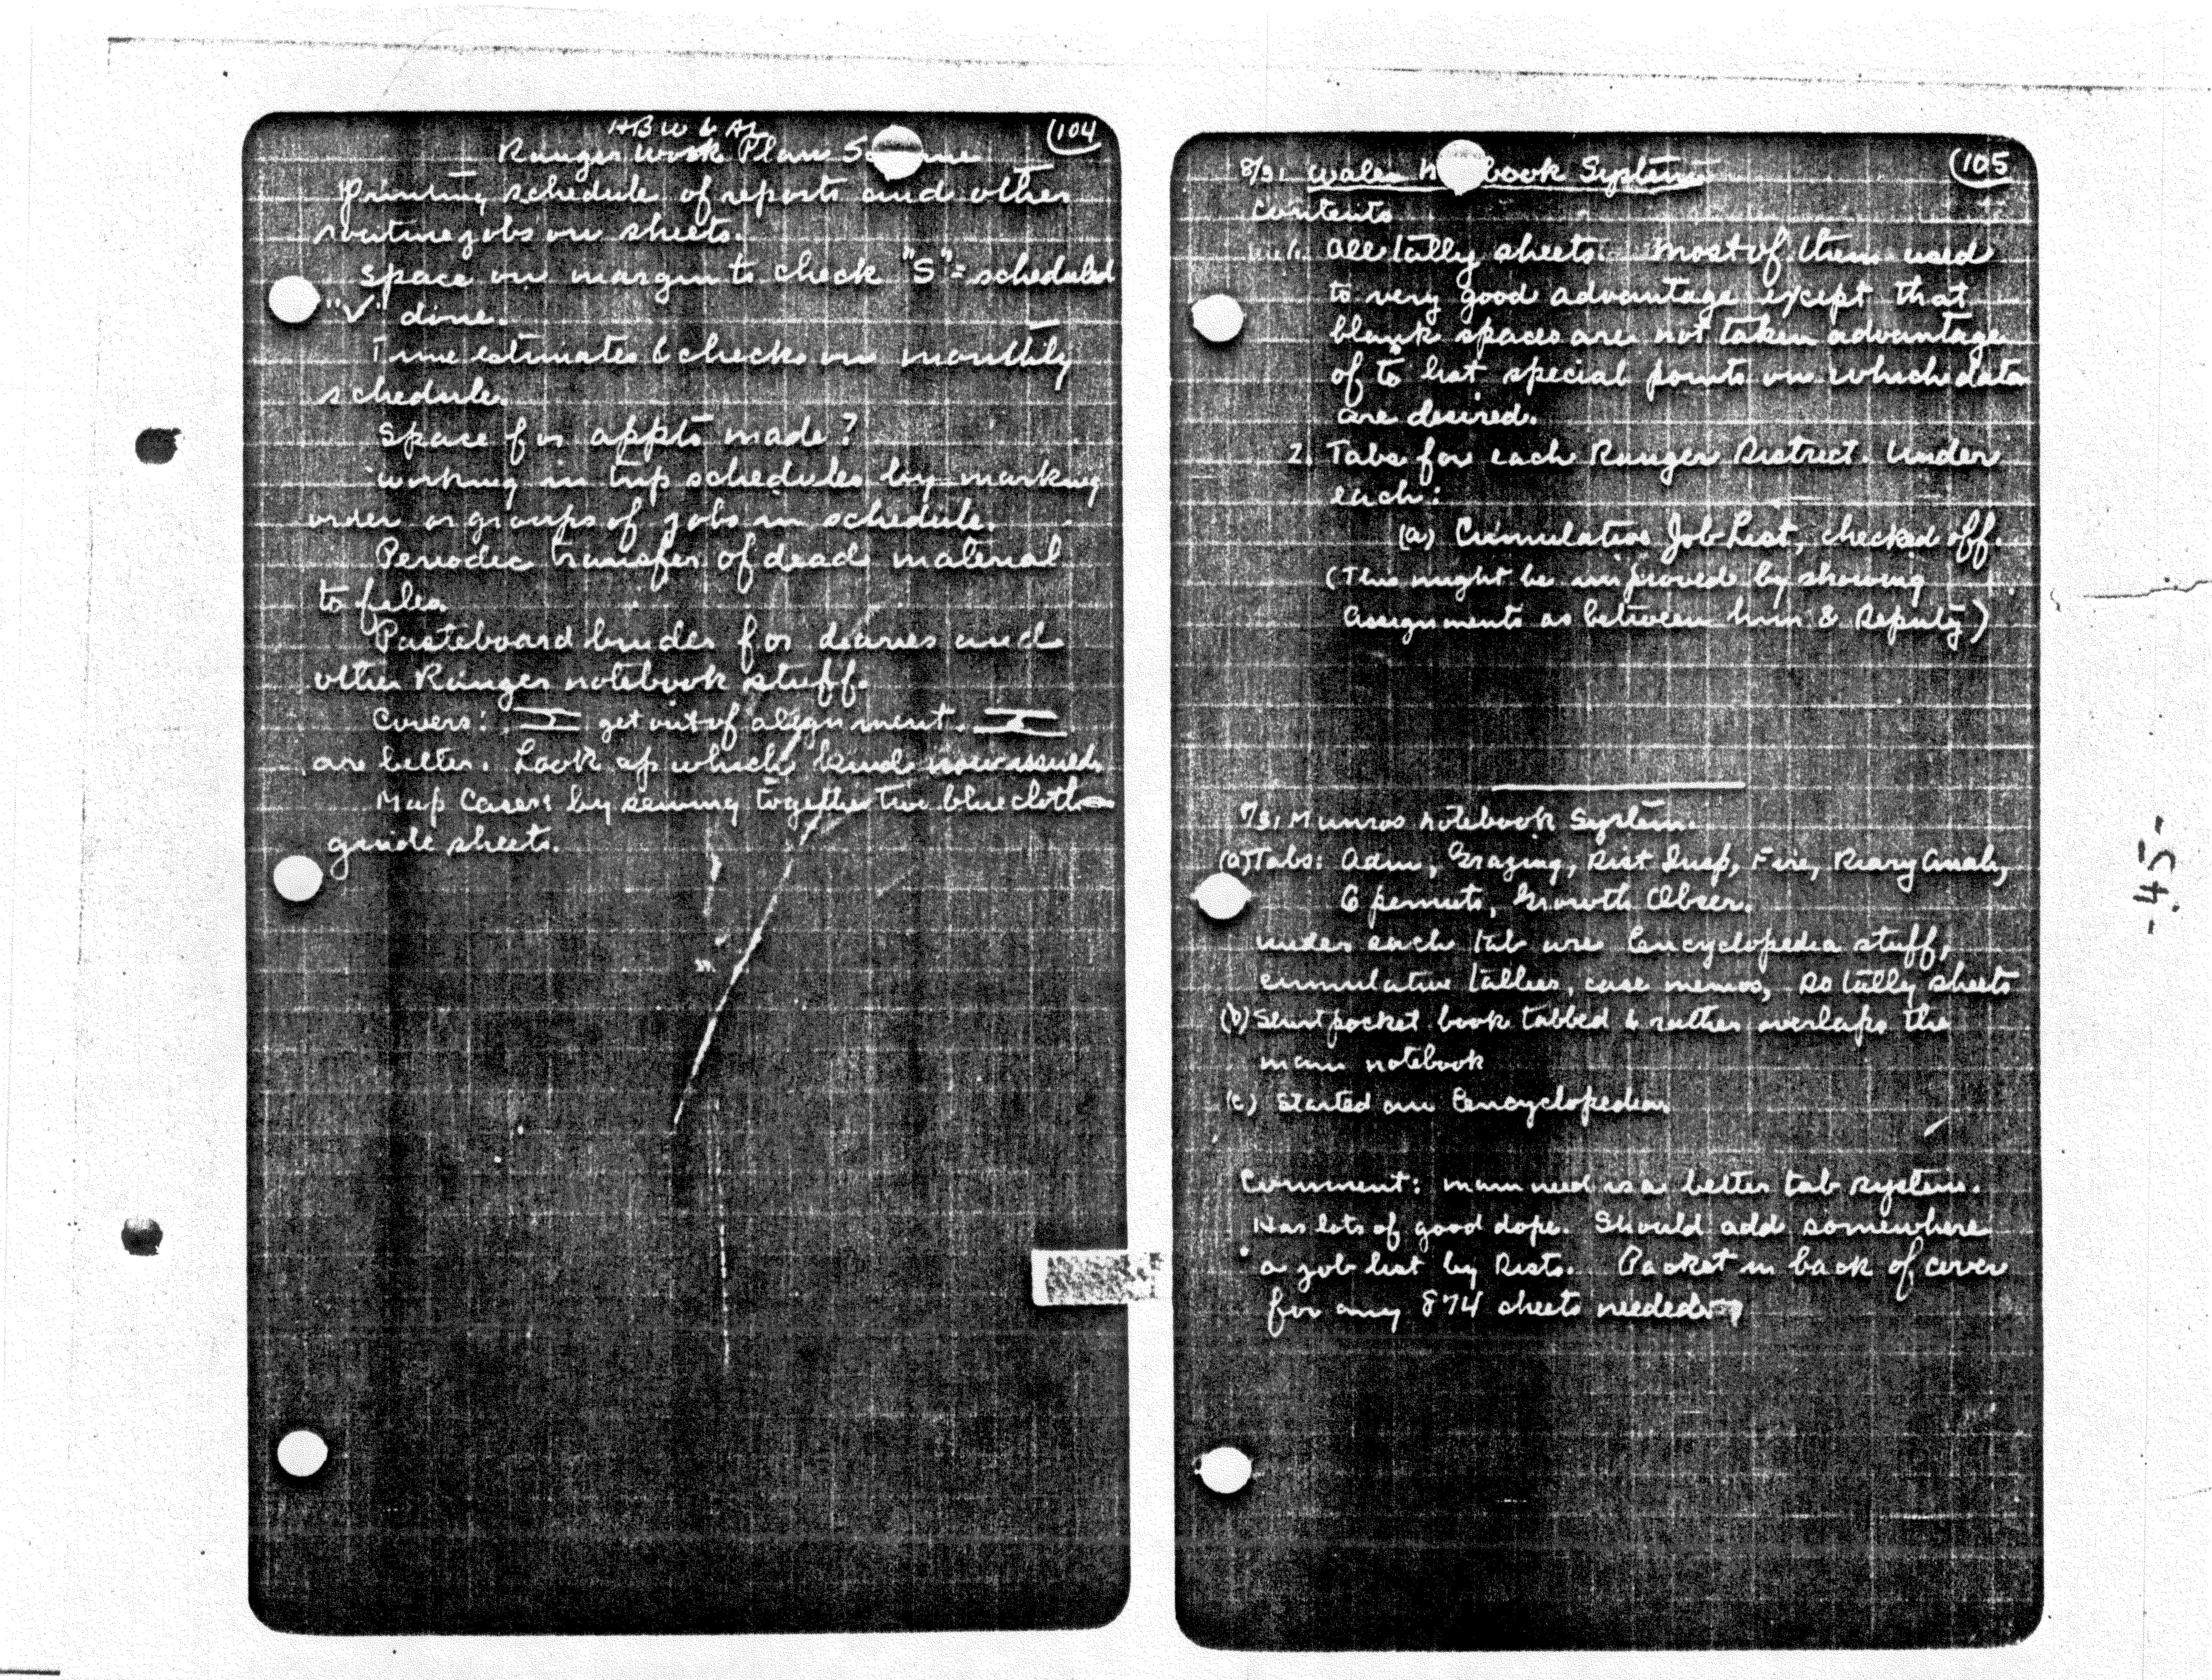 104
HBW & AL
Ranger Work Plan S
Printing schedule of reports and other
routine jobs on sheets.
Space on margin to check "S" = scheduled
"√" done.
Time estimates & checks on monthly
schedule.
Space for appts made?
Working in trip schedules by marking
order or groups of jobs in schedule.
Periodic transfer of dead material
to files.
Pasteboard binder for diaries and
other Ranger notebook stuff.
Covers: get out of alignment.
are better. Look up which kind now issued.
Map Cases: by sewing together two blue cloth
guide sheets.
105
8/31 Wales N book System
Contents
1. All tally sheets. Most of them used
to very good advantage except that
blank spaces are not taken advantage
of to list special points on which data
are desired.
2. Tabs for each Ranger District. Under
each:
(a) Cumulative Job List, checked off.
(This might be improved by showing
assignments as between him & Deputy)
Munros Notebook System.
(a) Tabs: Adm, Grazing, Dist Insp, Fire, Diary Anal,
G permits, Growth Obser.
under each tab are Encyclopedia stuff,
cumulative tallies, case memos, so tally sheets
(b) pocket book tabbed & rather overlaps the
main notebook
(c) Started an Encyclopedia.
Comment: main need is a better tab system.
Has lots of good dope. Should add somewhere
a job list by Dists. Pocket in back of cover
for any 874 sheets needed
-45-